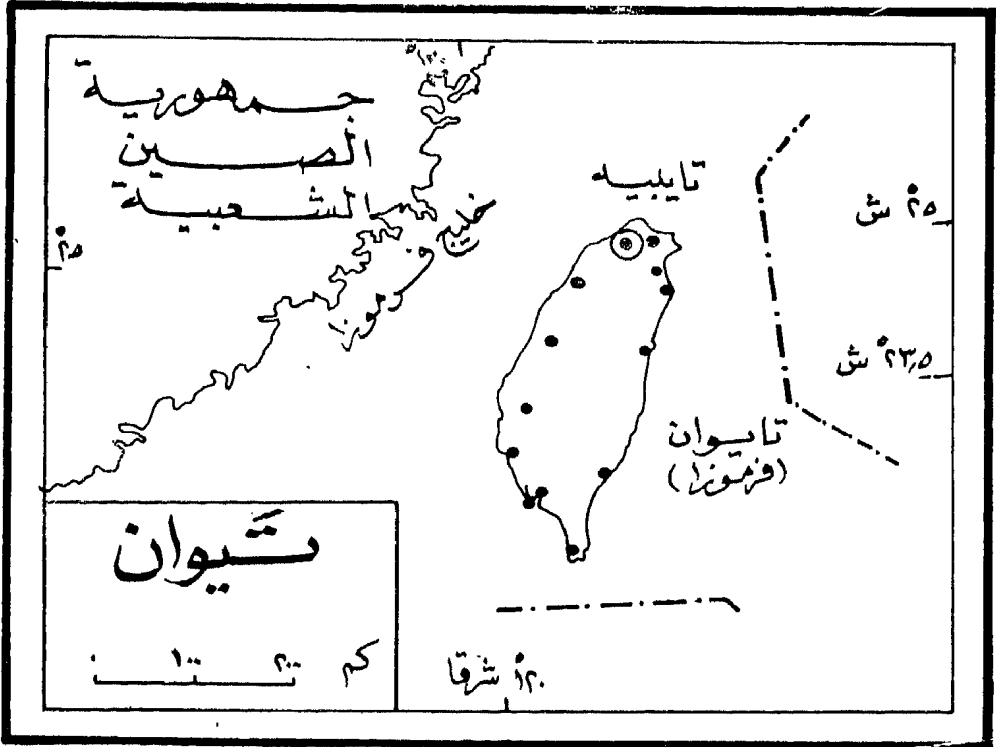 جمهورية
الصين
الشعبية
خليج فرموزا
تايبيه
°٢٥ ش
°٢٥
°٢٣٫٥ ش
تايوان
(فرموزا)
تَيوان
٠ ١٠٠ ٢٠٠ كم
°١٢٠ شرقا